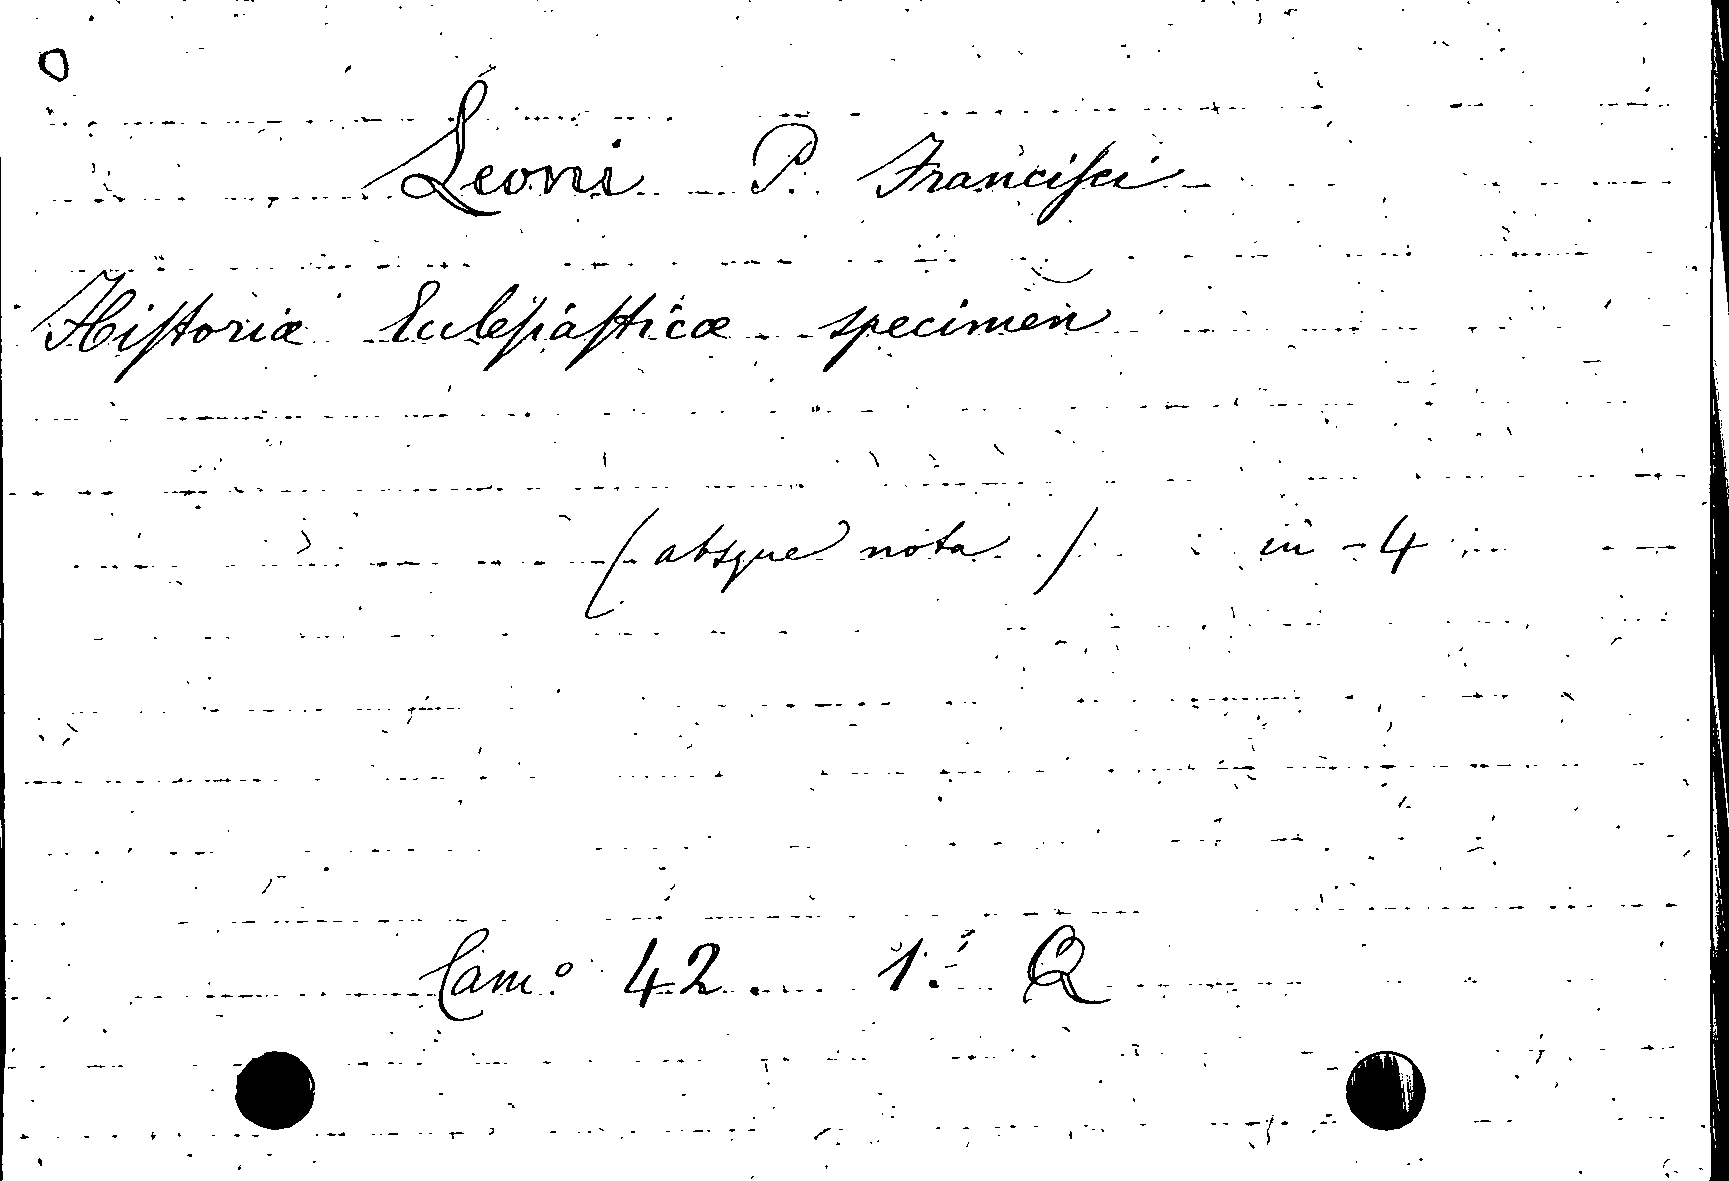 Leoni P. Francisci
Historiæ Eclesiasticæ specimen
(absque nota) in-4
Cam.º 42. 1.ª Q